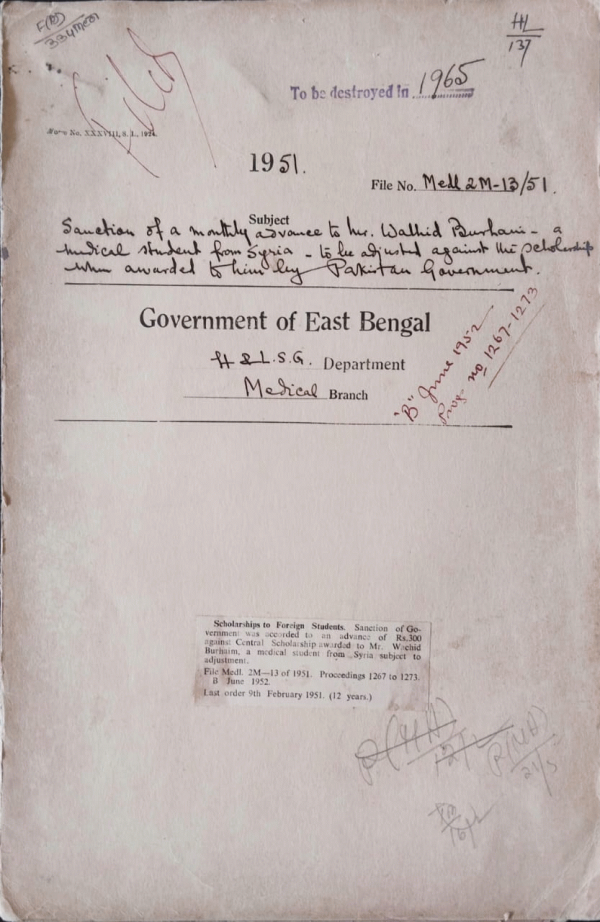 HL
137
To be destroyed in 1965
Filed
Form No. XXXVIII, S. I., 1924.
1951.
File No. Medl 2M-13/51.
Subject
Sanction of a monthly advance to Mr. Walhid Burhani - a
medical student from Syria - to be adjusted against the scholarship
when awarded to him by Pakistan Government.
Government of East Bengal
H & L.S.G. Department
Medical Branch
"B" June 1952
Prog. no 1267-1273
Scholarships to Foreign Students. Sanction of Go-
vernment was accorded to an advance of Rs.300
against Central Scholarship awarded to Mr. Wachid
Burhaim, a medical student from Syria subject to
adjustment.
File Medl. 2M—13 of 1951. Proceedings 1267 to 1273.
B June 1952.
Last order 9th February 1951. (12 years.)